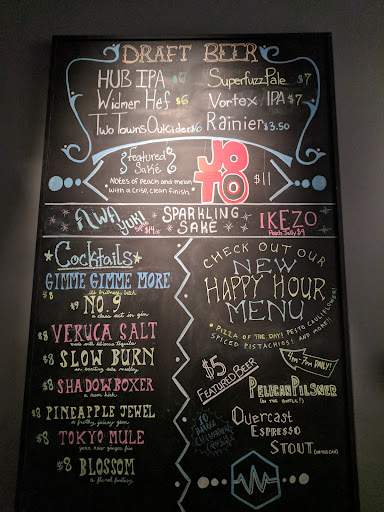 DRAFT BEER
HUB IPA $6
Superfuzz Pale $7
Widmer Hef $6
Vortex IPA $7
Two Towns Outcider $6
Rainier $3.50
Featured Sake
JOTO
$11
NOTES OF PEACH AND MELON
WITH A CRISP, CLEAN FINISH
AWA YUKI
$14
SPARKLING SAKE
IKEZO
Peach Jelly $9
Cocktails
GIMME GIMME MORE
$8 it's britney, bitch
$9 NO. 9
a class act in gin
$8 VERUCA SALT
$8 SLOW BURN
$8 SHADOWBOXER
a rum kick
$8 PINEAPPLE JEWEL
a frothy, fussy gem
$8 TOKYO MULE
your new ginger fix
$8 BLOSSOM
a floral fantasy
CHECK OUT OUR
NEW
HAPPY HOUR
MENU
PIZZA OF THE DAY! PESTO CAULIFLOWER!
SPICED PISTACHIOS! AND MORE!
4pm-7pm DAILY!
$5
FEATURED BEER
PELICAN PILSNER
(IN THE BOTTLE!)
Overcast
Espresso
STOUT (IN THE CAN)